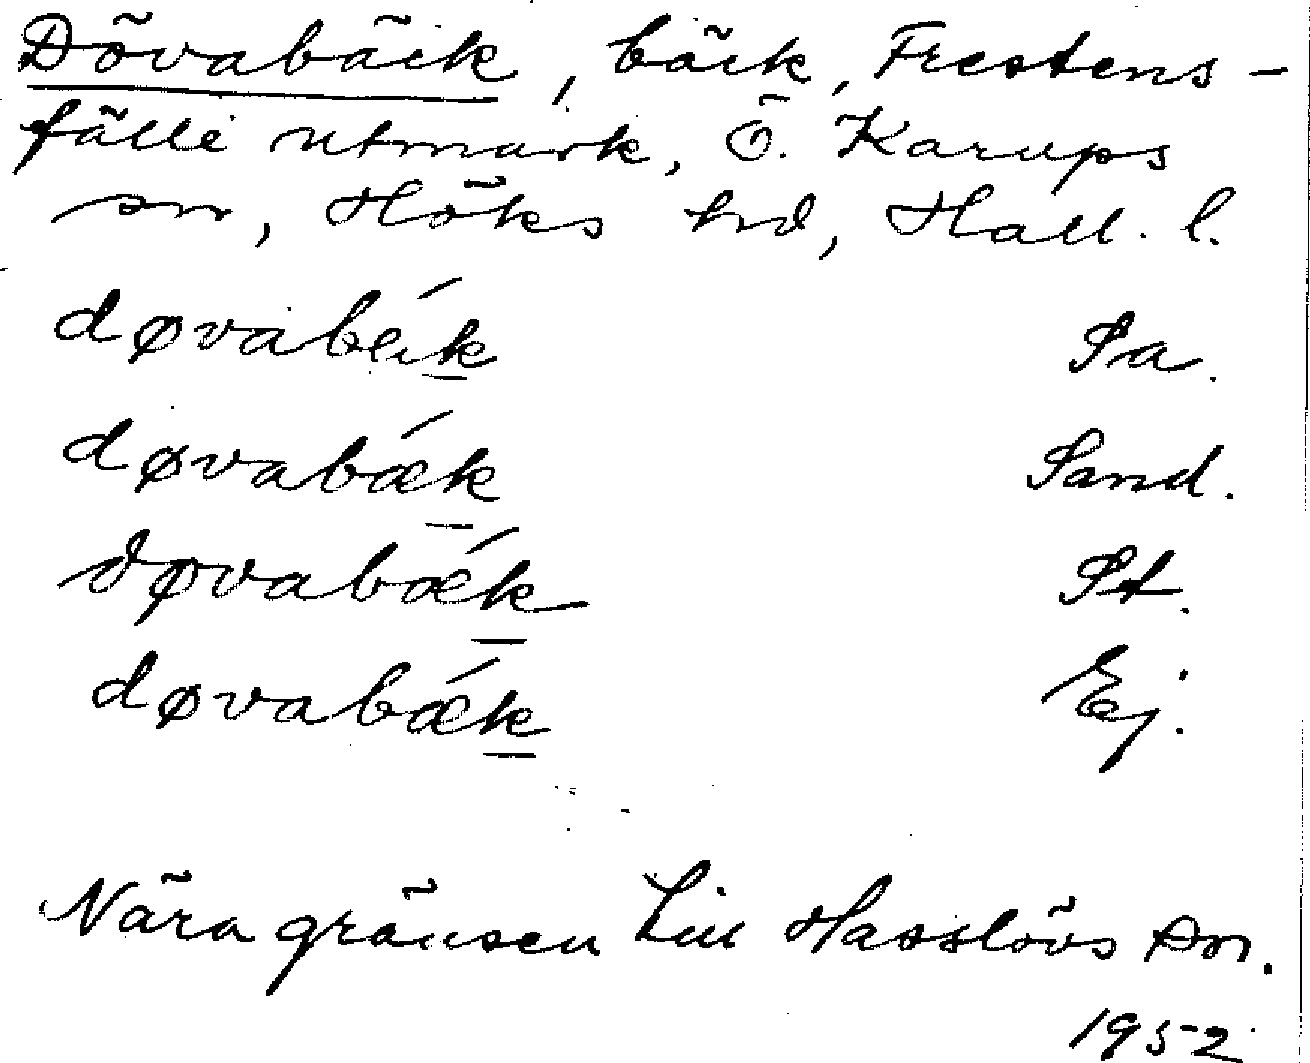 Dövabäck, bäck, Frestens-
fälle utmark, Ö. Karups
sn, Höks hd, Hall. l.
døvabǽk Sa.
døvabǽk Sand.
døvabǽk St.
døvabǽk Ej.
Nära gränsen till Hasslövs sn.
1952